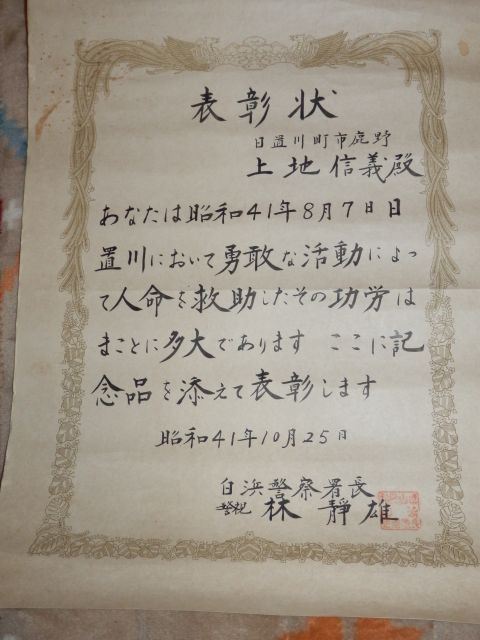 表彰状
日置川町市鹿野
上地信義殿
あなたは昭和41年8月7日日
置川において勇敢な活動によっ
て人命を救助したその功労は
まことに多大であります ここに記
念品を添えて表彰します
昭和41年10月25日
白浜警察署長
警視 林 靜雄